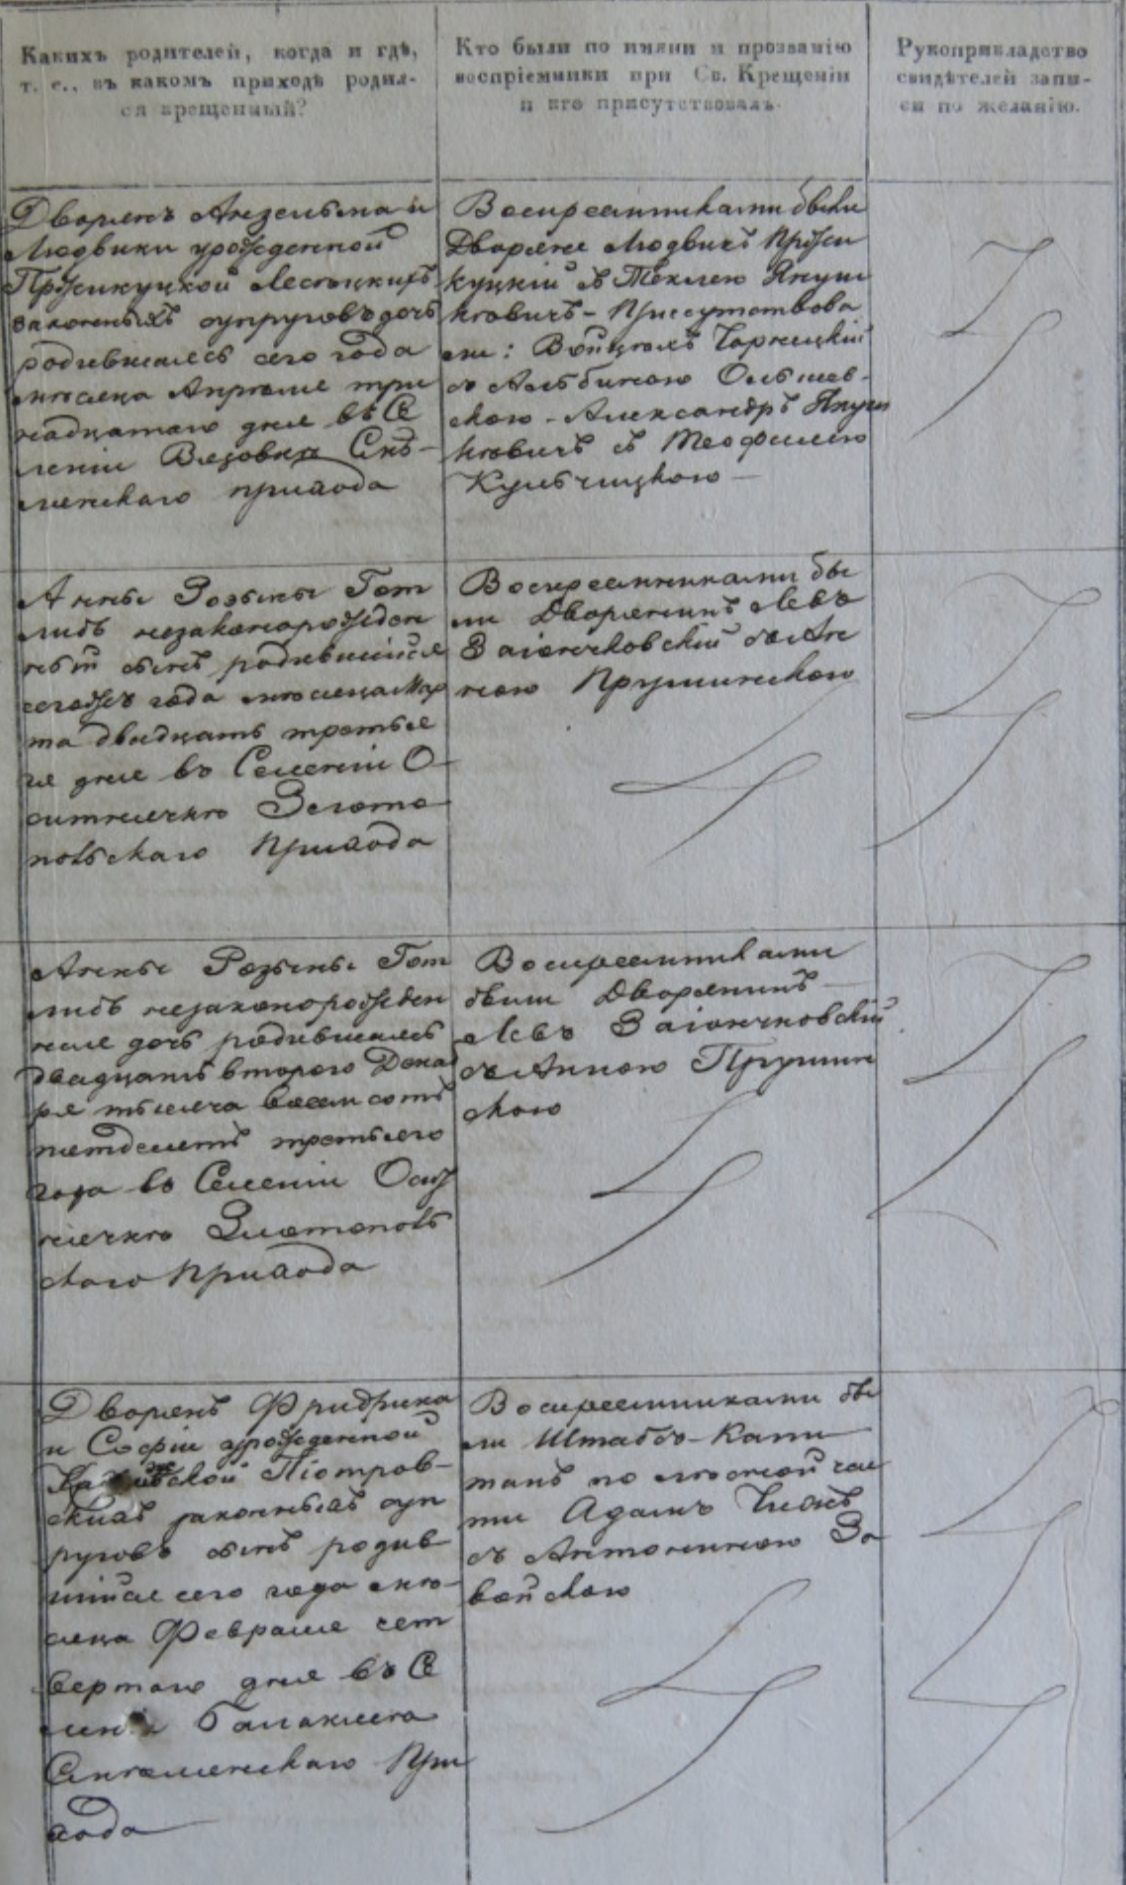 Какихъ родителей, когда и гдѣ,
т. е., въ какомъ приходѣ родил-
ся крещенный?
Кто были по имяни и прозванію
воспріемники при Св. Крещеніи
и кто присутствовалъ.
Рукоприкладство
свидѣтелей запи-
си по желанію.
Дворянъ Анзельма и
Людвики урожденной
Пржилуцкой
законныхъ супруговъ дочь
родившаяся сего года
мѣсяца Апрѣля три
надцатаго дня въ Се
леніи Вязовка Смѣ-
лянскаго прихода
Воспреемниками были
Дворяне Людвихъ Пржи
луцкій съ Теклею Януш
кевичъ - Присутствова
ли: Войцехъ Чарнецкій
съ Альбиною Ольшев-
скою - Александръ Януш
кевичъ съ Теофилею
Кульчицкою -
Анны Розыны Гот
либъ незаконорожден
ный сынъ родившійся
сегожъ года мѣсяца Мар
та двадцать третья
го дня въ Селеніи О-
ситнячкѣ Златопо-
польскаго Прихода
Воспреемниками бы
ли Дворянинъ Левъ
Заіончковскій съ Ан
ною Прушинскою
Анны Розыны Гот
либъ незаконорожден
ная дочь родившаяся
двадцать втораго Дека
бря тысяча восемь сотъ
пятдесятъ третьяго
года въ Селеніи Осит
нячкѣ Златополь
скаго Прихода
Воспреемниками
были Дворянинъ -
Левъ Заіончковскій
съ Анною Прушин
скою
Дворянъ Фридриха
и Софіи урожденной
Піотров-
скихъ законныхъ суп
руговъ сынъ родив
шійся сего года мѣ-
сяца Февраля чет
вертаго дня въ Се
леніи Балаклея
Смѣлянскаго При
хода
Воспреемниками бы
ли Штабсъ-Капи
танъ по лѣсной час
ти Адамъ
съ Антониною За
войскою